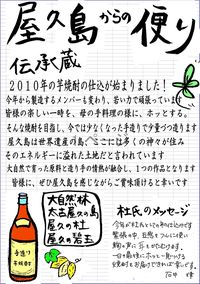 屋久島からの便り
伝承蔵
2010年の芋焼酎の仕込が始まりました!
今年から製造するメンバーも変わり、若い力で頑張っています
皆様の楽しい一時を、母の手料理の様に、ホッとする。
そんな焼酎を目指し、今では少なくなった手造りで夕暮づつ造ります
屋久島は世界遺産の島、ここには多くの神々が住み
そのエネルギーに溢れた土地だと言われています
大自然で育った原料と造り手の情熱が融合し、1つの作品となります
皆様に、ぜひ屋久島を感じながらご賞味頂けると幸いです
大自然林
太古屋久の島
屋久の杜
屋久の碧玉
手造り
芋焼酎
杜氏のメッセージ